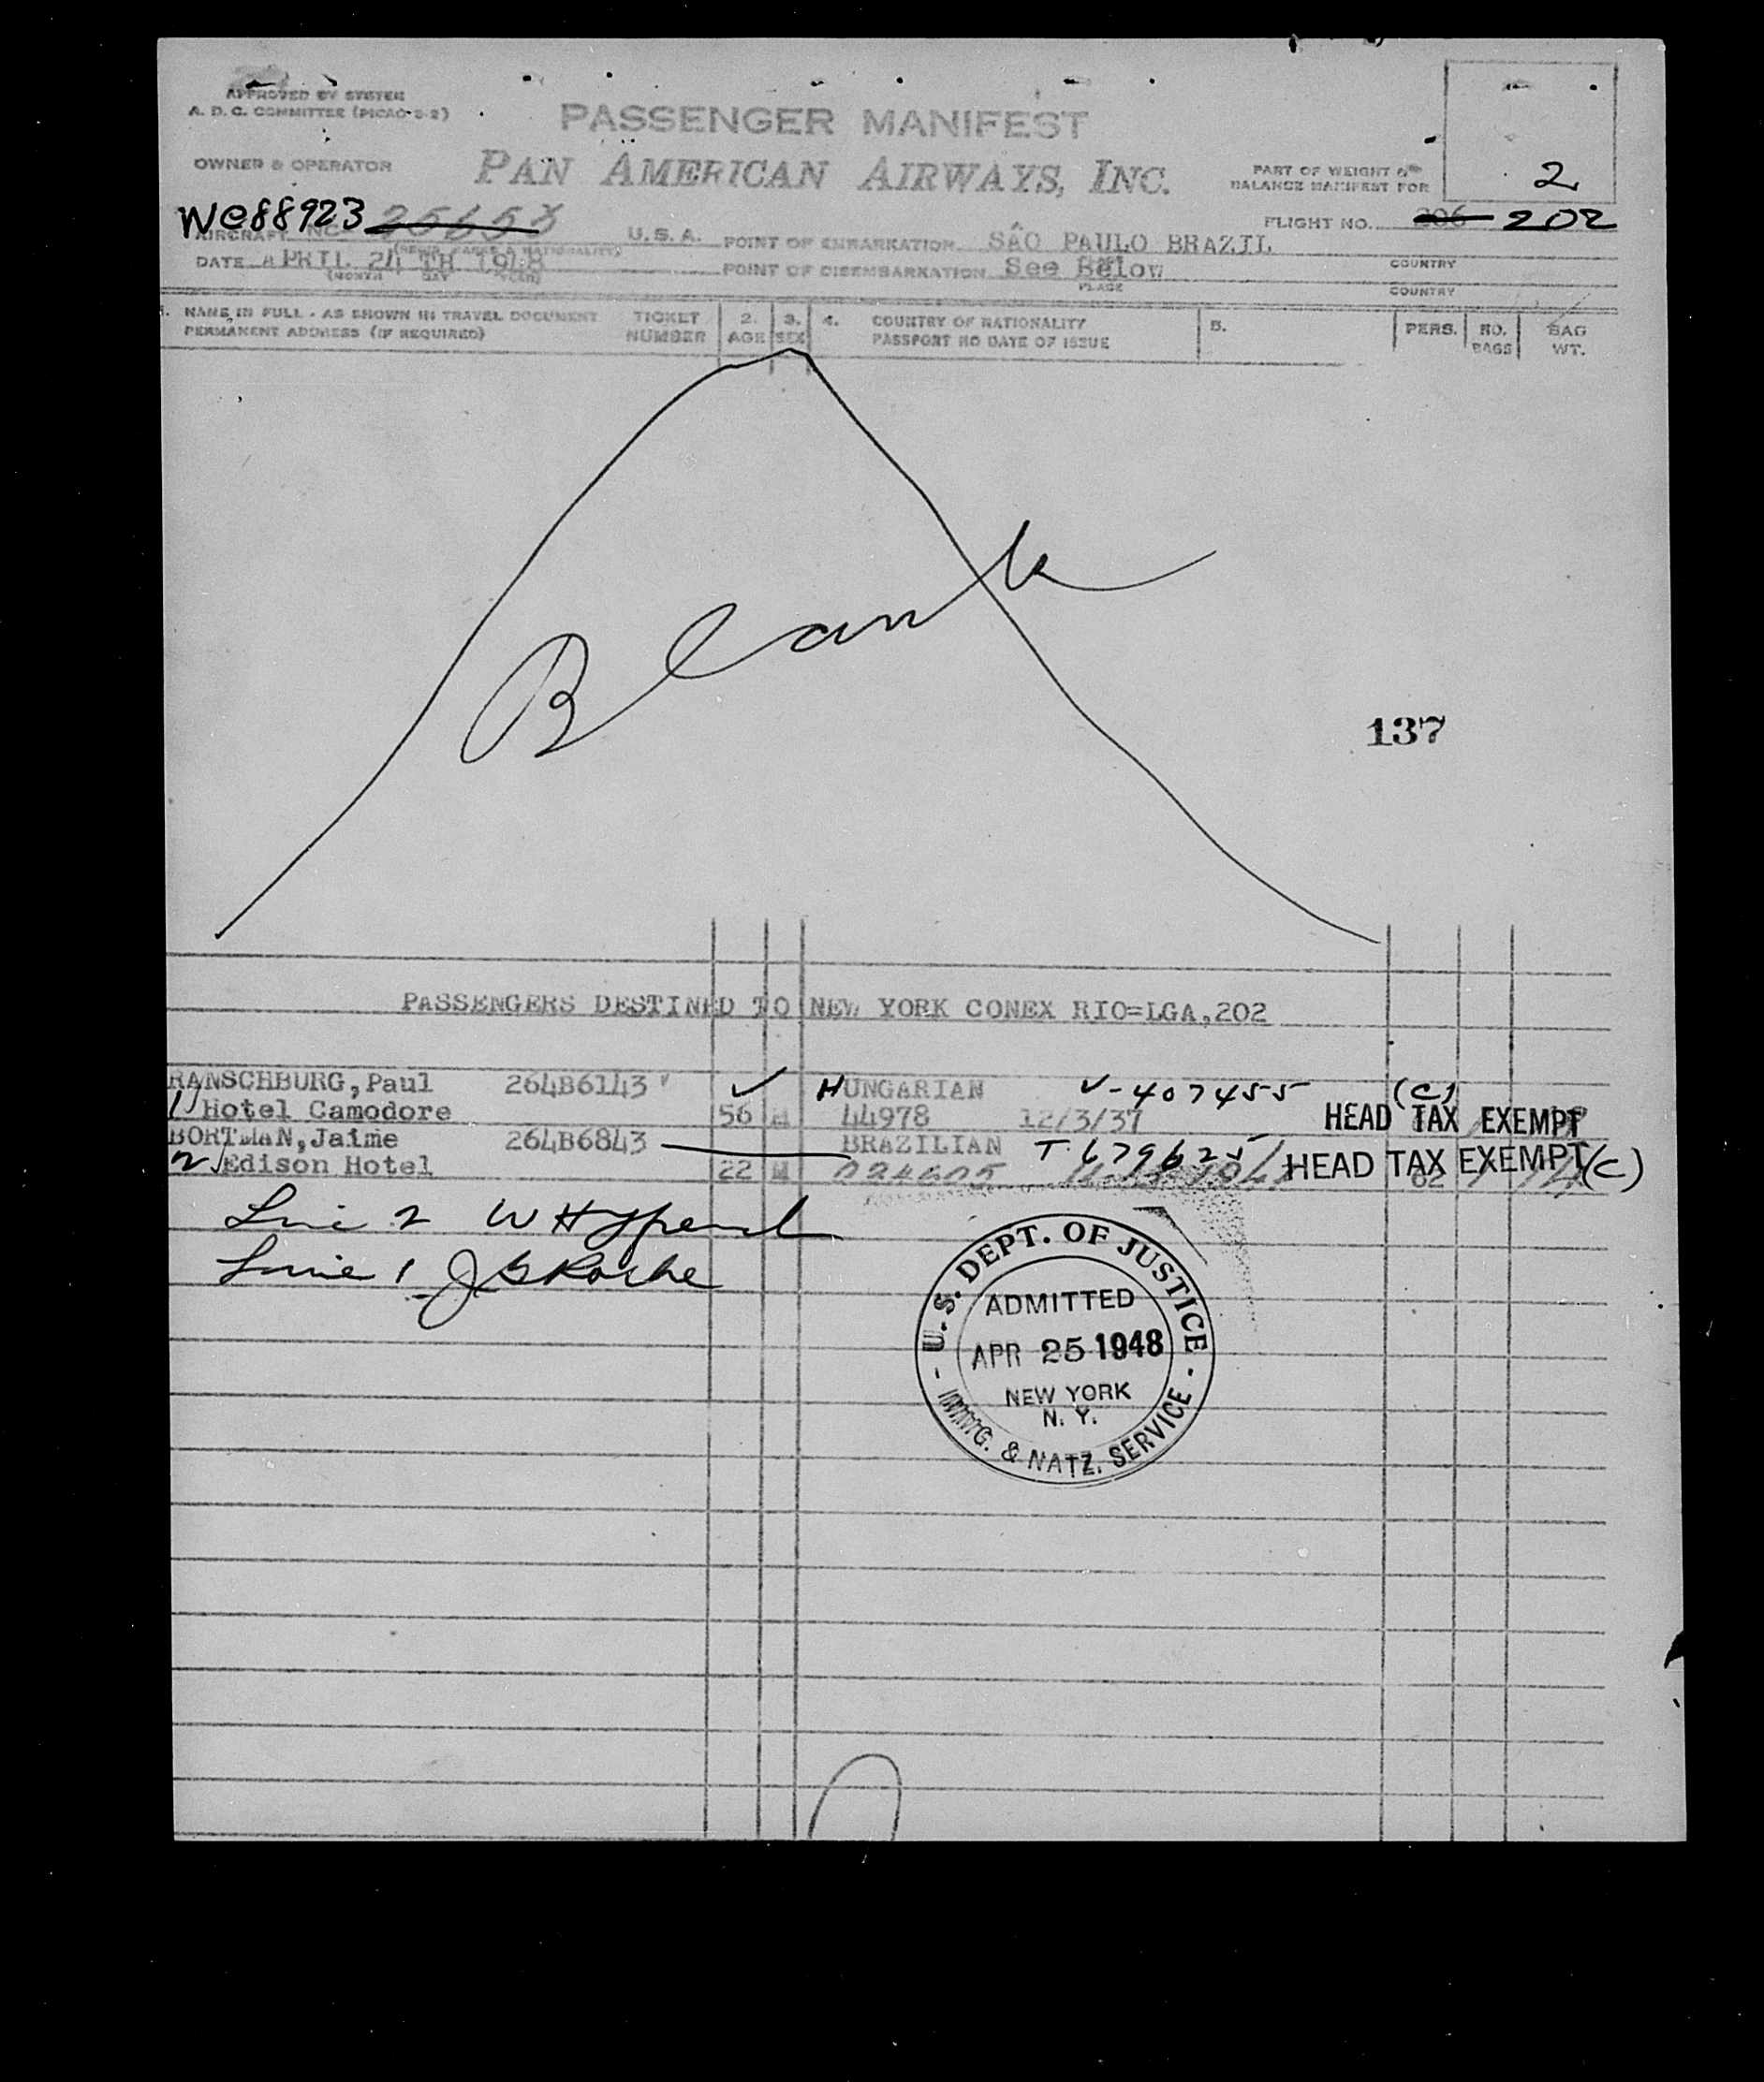 APPROVED BY SYSTEM
A. D. C. COMMITTEE (PICAO-S-2)
PASSENGER MANIFEST
OWNER & OPERATOR
PAN AMERICAN AIRWAYS, INC.
PART OF WEIGHT &
BALANCE MANIFEST FOR
2
NC88923 25653
FLIGHT NO. 206 202
AIRCRAFT NC- U.S.A. POINT OF EMBARKATION SÃO PAULO BRAZIL
COUNTRY
DATE APRIL 24 TH 1948 POINT OF DISEMBARKATION See Below
(MONTH DAY YEAR) PLACE COUNTRY
NAME IN FULL - AS SHOWN IN TRAVEL DOCUMENT TICKET 2. 3. 4. COUNTRY OF NATIONALITY 5. PERS. NO. BAG
PERMANENT ADDRESS (IF REQUIRED) NUMBER AGE SEX PASSPORT NO DATE OF ISSUE BAGS WT.
Blank
137
PASSENGERS DESTINED TO NEW YORK CONEX RIO=LGA,202
RANSCHBURG,Paul 264B6143 ✓ HUNGARIAN V-407455 (C)
1 Hotel Camodore 56 M 44978 12/3/37 HEAD TAX EXEMPT
BORTMAN,Jaime 264B6843 BRAZILIAN T.679625
2 Edison Hotel 22 M HEAD TAX EXEMPT (C)
Line 2 W H
Line 1 J G Roche
U.S. DEPT. OF JUSTICE
ADMITTED
APR 25 1948
NEW YORK
N. Y.
IMMIG. & NATZ. SERVICE